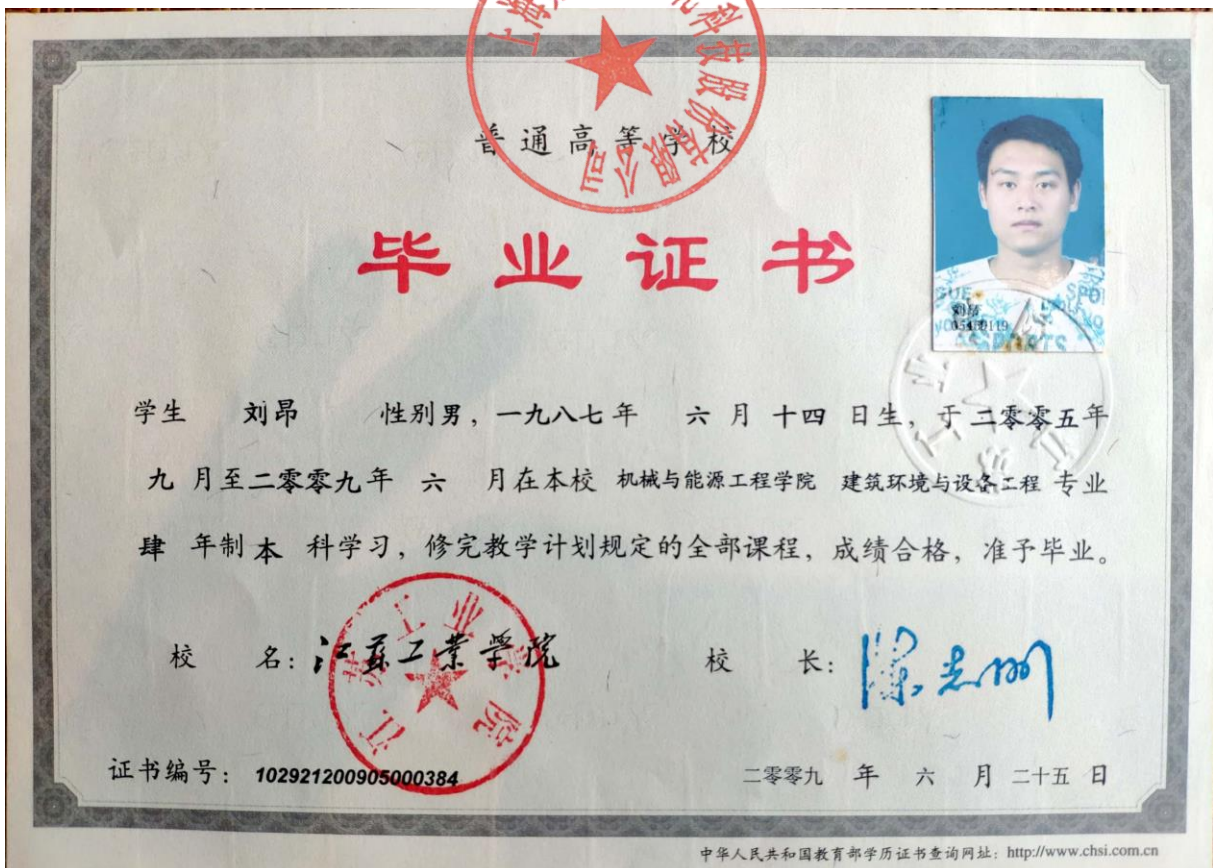 普通高等学校
毕业证书
刘昂
学生 刘昂 性别男，一九八七年 六月十四日生，于二零零五年
九月至二零零九年 六 月在本校 机械与能源工程学院 建筑环境与设备工程 专业
肆 年制 本 科学习，修完教学计划规定的全部课程，成绩合格，准予毕业。
校 名：江苏工业学院
校 长：
江苏工业学院
证书编号：102921200905000384
二零零九 年 六 月 二十五 日
中华人民共和国教育部学历证书查询网址：http://www.chsi.com.cn